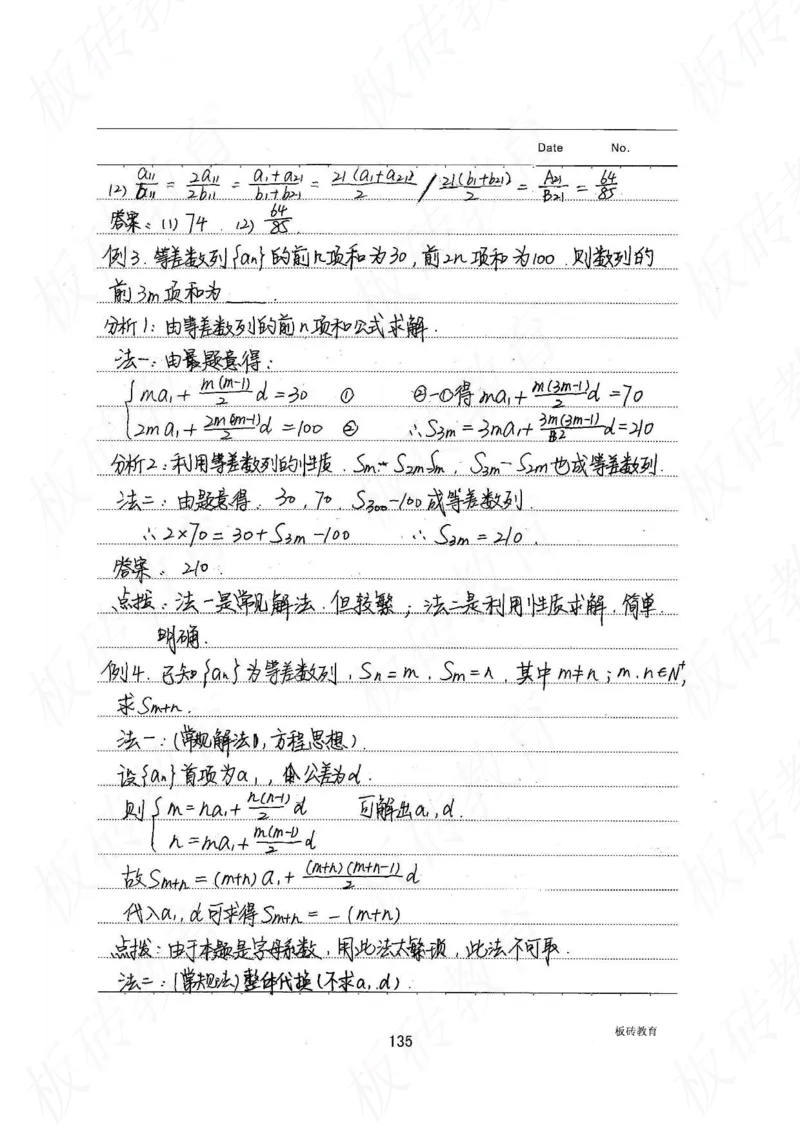 Date No.
(2) a₁₁/b₁₁ = 2a₁₁/2b₁₁ = (a₁+a₂₁)/(b₁+b₂₁) = 21(a₁+a₂₁)/2 / 21(b₁+b₂₁)/2 = A₂₁/B₂₁ = 64/85.
答案:(1) 74 . (2) 64/85.
例3. 等差数列{an}的前n项和为30,前2n项和为100.则数列的
前3m项和为____.
分析1:由等差数列的前n项和公式求解.
法一:由题意得:
{ ma₁+ m(m-1)/2 d =30 ① ②-①得 ma₁+ m(3m-1)/2 d =70
2ma₁+ 2m(2m-1)/2 d =100 ② ∴S₃m=3ma₁+ 3m(3m-1)/2 d=210
分析2:利用等差数列的性质. Sm, S₂m-Sm, S₃m-S₂m也成等差数列.
法二:由题意得. 30,70. S₃₀₀-100成等差数列.
∴2×70=30+S₃m-100 ∴S₃m=210.
答案. 210.
点拨:法一是常见解法.但较繁;法二是利用性质求解.简单.
明确.
例4. 已知{an}为等差数列,Sn=m. Sm=n,其中m≠n;m.n∈N⁺,
求Sm+n.
法一:(常规解法,方程思想).
设{an}首项为a₁,公差为d.
则{ m=na₁+ n(n-1)/2 d 可解出a₁,d.
n=ma₁+ m(m-1)/2 d
故Sm+n=(m+n)a₁+ (m+n)(m+n-1)/2 d
代入a₁,d可求得Sm+n=-(m+n)
点拨:由于本题是字母系数,用此法太繁琐,此法不可取.
法二:(常规法)整体代换(不求a₁,d).
135
板砖教育